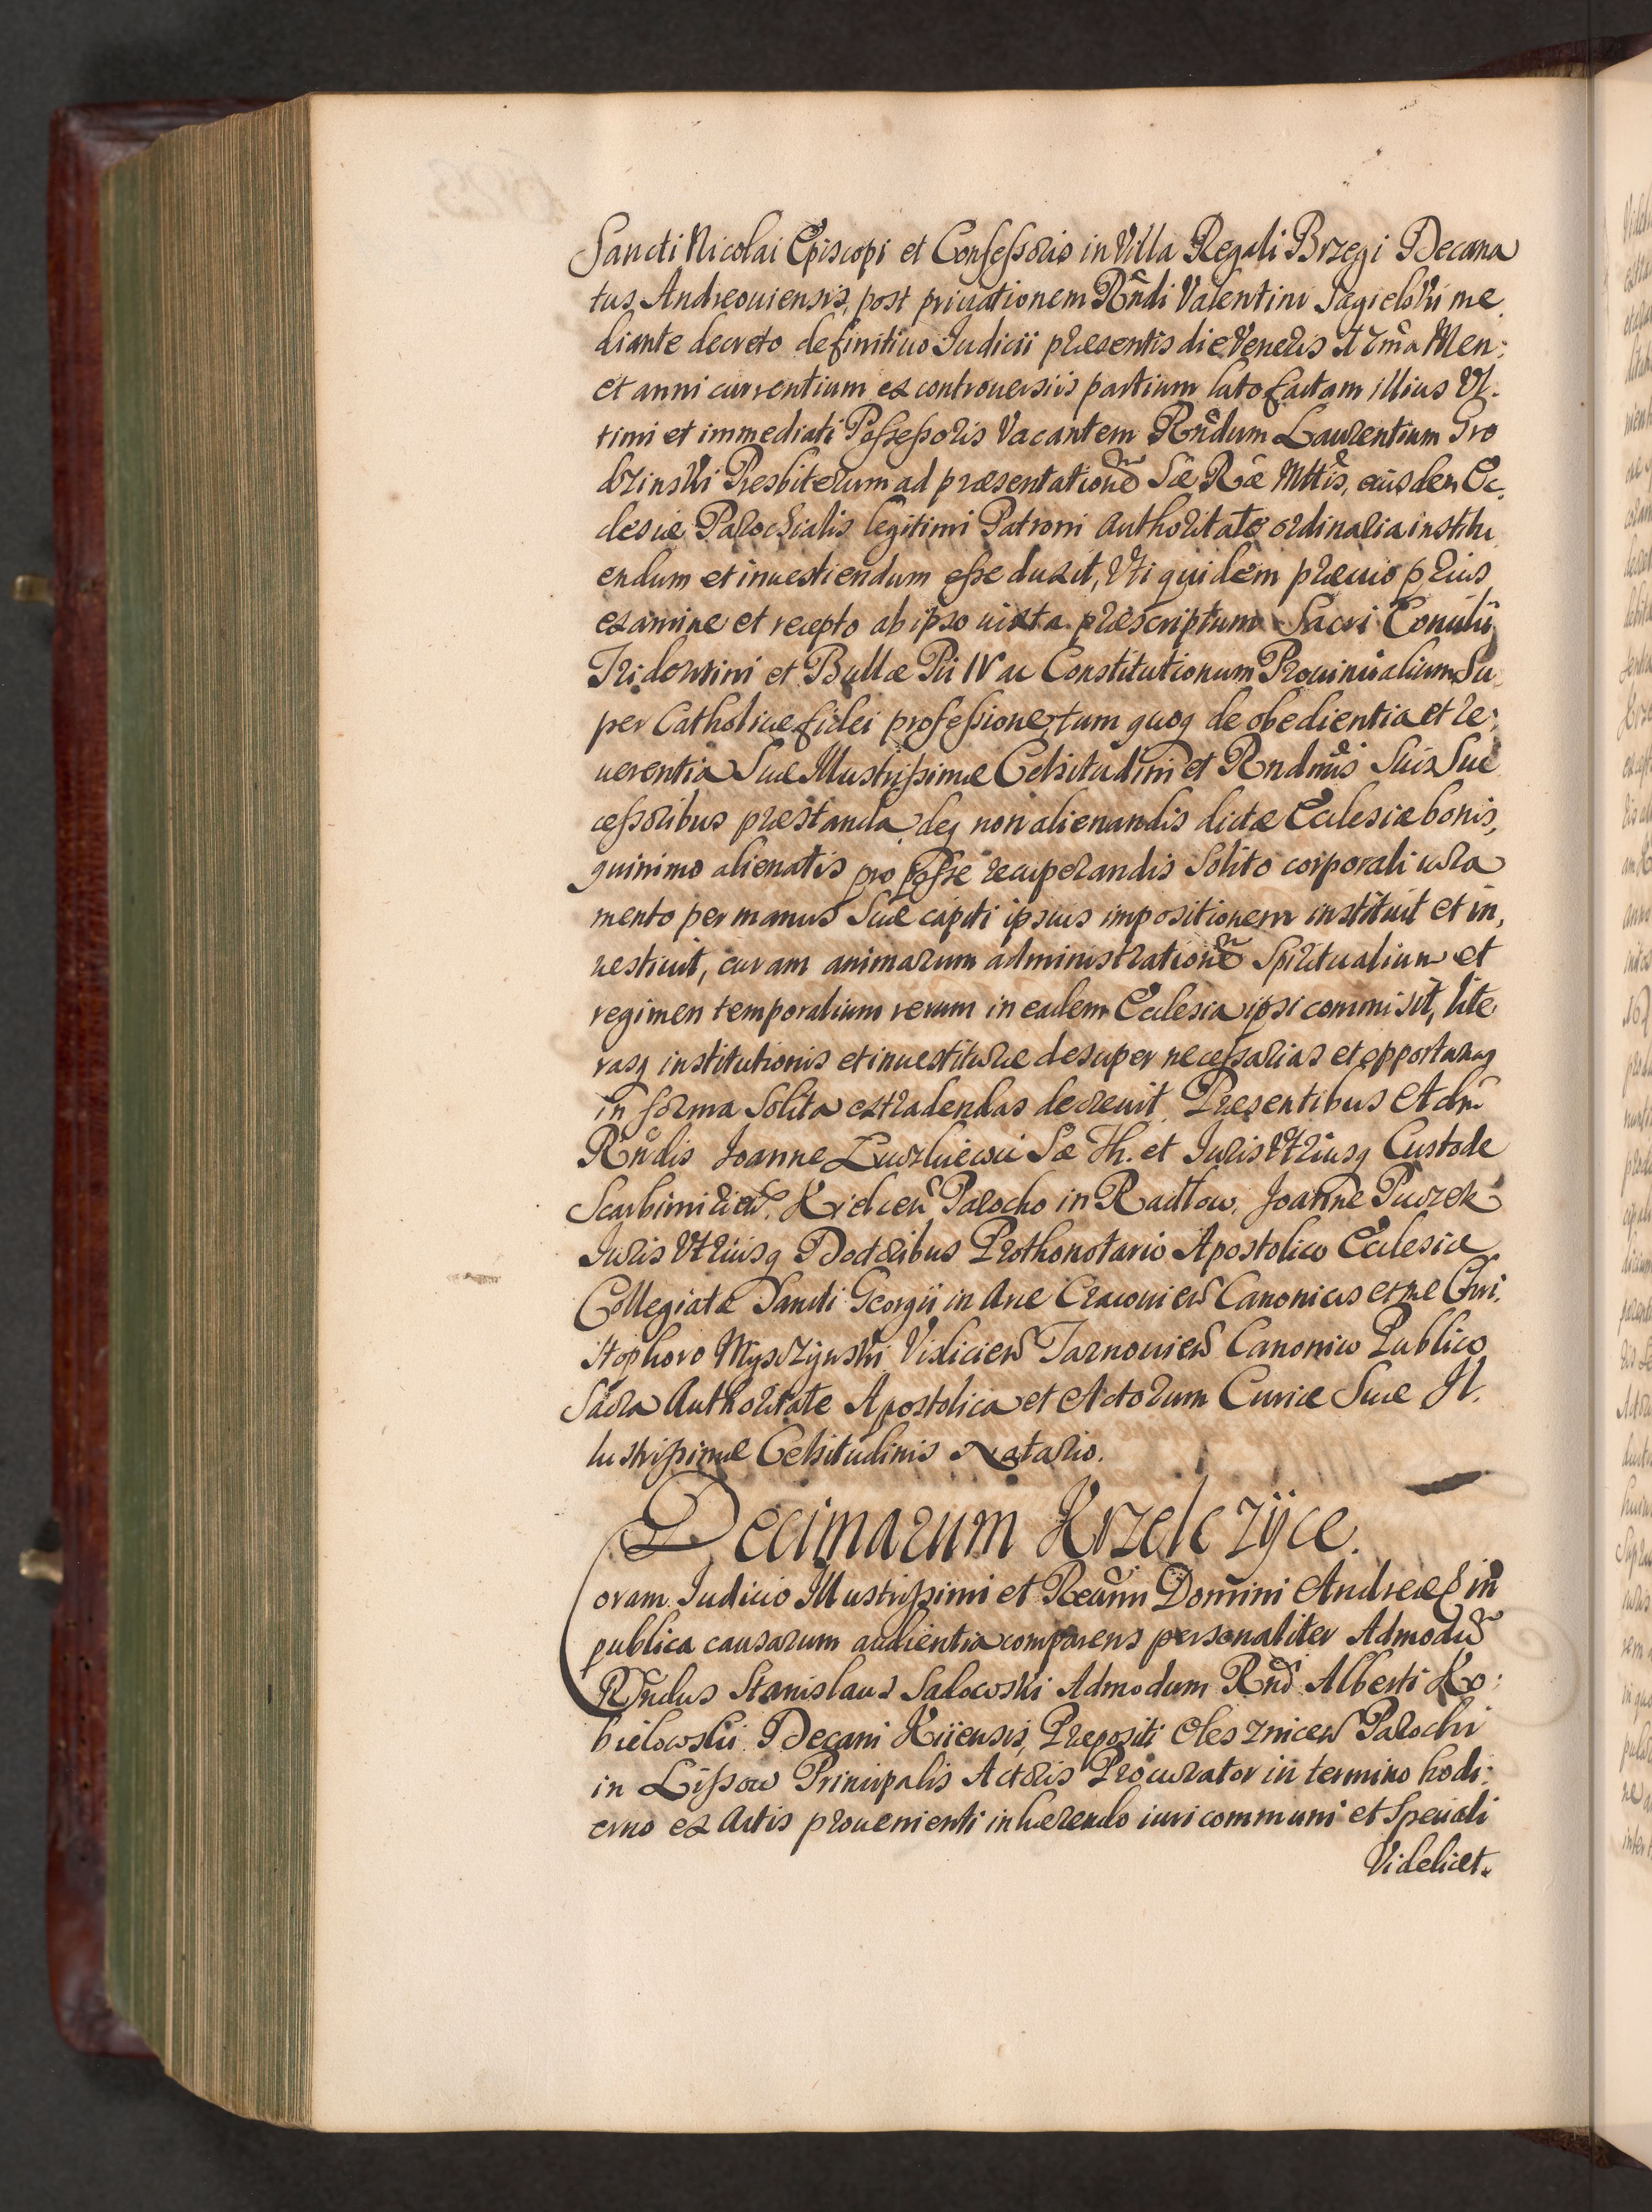 Sancti Nicolai Episcopi et Confessoris in Villa Regali Brzegi Decana
tus Andreouiensis, post priuationem Rñdi Valentini Jagielski me,
diante decreto definitiuo Iudicii præsentis die Veneris Men:
et anni currentium ex controuersiis partium lato factam illius Vl.
timi et immediati Possessoris Vacantem Rñdum Laurentium Gro
dzinski Presbiterum ad præsentatione Sæ Ræ Mttis, eiusdem Ec,
clesiæ Parochialis legitimi Patroni authoritate ordinaria institu
endum et inuestiendum esse duxit, Vti quidem præuio prius
examine et recepto ab ipso iuxta præscriptum Sacri Concilii
Tridentini et Bullæ Pii IV ac Constitutionum Prouincialium Su
per Catholicæ fidei professione, tum quoq de obedientia et re:
uerentia Suæ Illustrissimæ Celsitudini et Rndmis Suis Suc
cessoribus præstanda, deq non alienandis dictæ Ecclesiæ bonis,
quinimo alienatis pro posse recuperandis Solito corporali iura
mento per manus Suæ capiti ipsius impositionem instituit et in,
uestiuit, curam animarum administratione Spiritualium et
regimen temporalium rerum in eadem Ecclesia ipsi commisit, lite
rasq institutionis et inuestituræ desuper necessarias et opportunas
in forma Solita extradendas decreuit. Præsentibus Adm
Rñdis Joanne Sæ Th. et Iuris Vtriusq Custode
Scarbimirien. Kielcen Parocho in Radłow, Joanne Puczek
Iuris Vtriusq Doctoribus Prothonotario Apostolico Ecclesiæ
Collegiatæ Sancti Georgii in Arce Cracouien Canonicis et me Chri,
stophoro Mysczynski Visliciен Tarnouien Canonico Publico
Sacra Authoritate Apostolica et Actorum Curiæ Suæ Il,
lustrissimæ Celsitudinis Notario.
Decimarum Krzelczÿce.
Coram Iudicio Illustrissimi et Domini Andreæ in
publica causarum audientia comparens personaliter Admodu
Rñdus Stanislaus Salowski Admodum Rnd Alberti Ko:
bielowski Decani Kiiensis, Præpositi Olesznicen Parochi
in Lissow Principalis Actoris Procurator in termino hodi:
erno ex Actis prouenienti inhærendo iuri communi et Speciali
Videlicet.